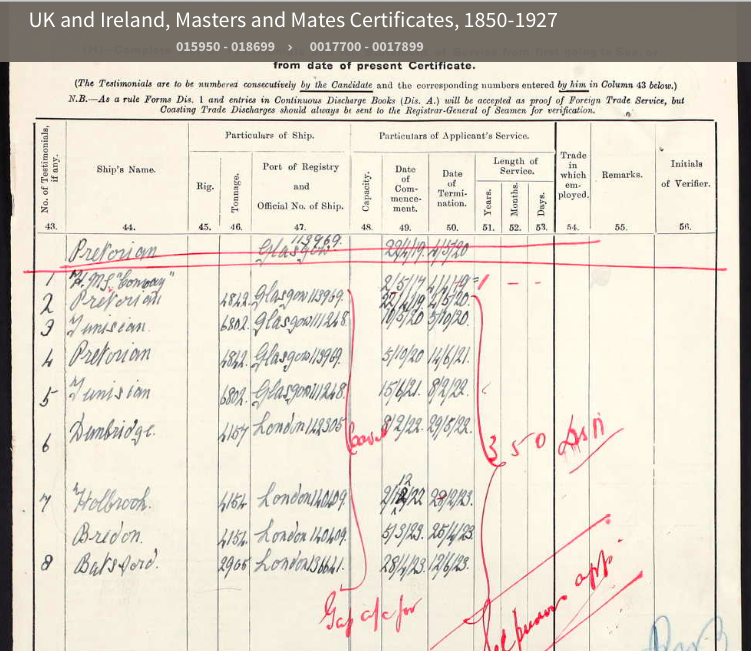 UK and Ireland, Masters and Mates Certificates, 1850-1927
015950 - 018699 › 0017700 - 0017899
from date of present Certificate.
(The Testimonials are to be numbered consecutively by the Candidate and the corresponding numbers entered by him in Column 43 below.)
N.B.—As a rule Forms Dis. 1 and entries in Continuous Discharge Books (Dis. A.) will be accepted as proof of Foreign Trade Service, but
Coasting Trade Discharges should always be sent to the Registrar-General of Seamen for verification.
No. of Testimonials, if any.
Ship's Name.
Particulars of Ship.
Rig.
Tonnage.
Port of Registry
and
Official No. of Ship.
Particulars of Applicant's Service.
Capacity.
Date of Commencement.
Date of Termination.
Length of Service.
Years.
Months.
Days.
Trade in which employed.
Remarks.
Initials of Verifier.
43. 44. 45. 46. 47. 48. 49. 50. 51. 52. 53. 54. 55. 56.
Pretorian Glasgow 113969. 22/4/19 4/5/20
1 H.M.S. "Conway" 2/5/17 1 - -
2 Pretorian 4842. Glasgow 113969. 22/4/19 4/5/20.
3 Tunisian. 6802. Glasgow 111248. 10/5/20 3/10/20.
4 Pretorian 4842. Glasgow 113969. 5/10/20 14/6/21.
5 Tunisian 6802. Glasgow 111248. 15/6/21. 8/2/22.
6 Dunbridge. 4157 London 8/2/22. 29/8/22.
3 5 0
7 Holbrook. 4154. London 140409. 28/2/23.
Bredon. 4154. London 140409. 5/3/23. 25/4/23.
8 Batsford. 2905 London 136641. 28/4/23. 12/6/23.
Gap a/c for